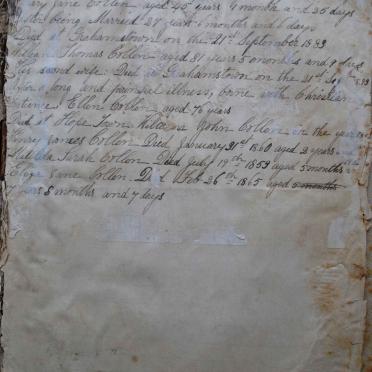 Jane Collen aged 45 years 4 months and 26 days
After being Married 27 years 4 months and 6 days
Died at Grahamstown on the 21st September 1893
William Thomas Collen aged 81 years 5 months and 9 days
His second wife. Died at Grahamstown on the 21st Sep 1893
After a long and painful illness, borne with Christian
Patience. Ellen Collen aged 76 years
Died at Hope Town William John Collen in the year
Henry James Collen Died January 31st 1860 aged 2 years
Matilda Sarah Collen. Died July 19th 1859 aged 5 months
Eliza Jane Collen. Died Feb 26th 1865 aged 5 months
7 years 8 months and 7 days